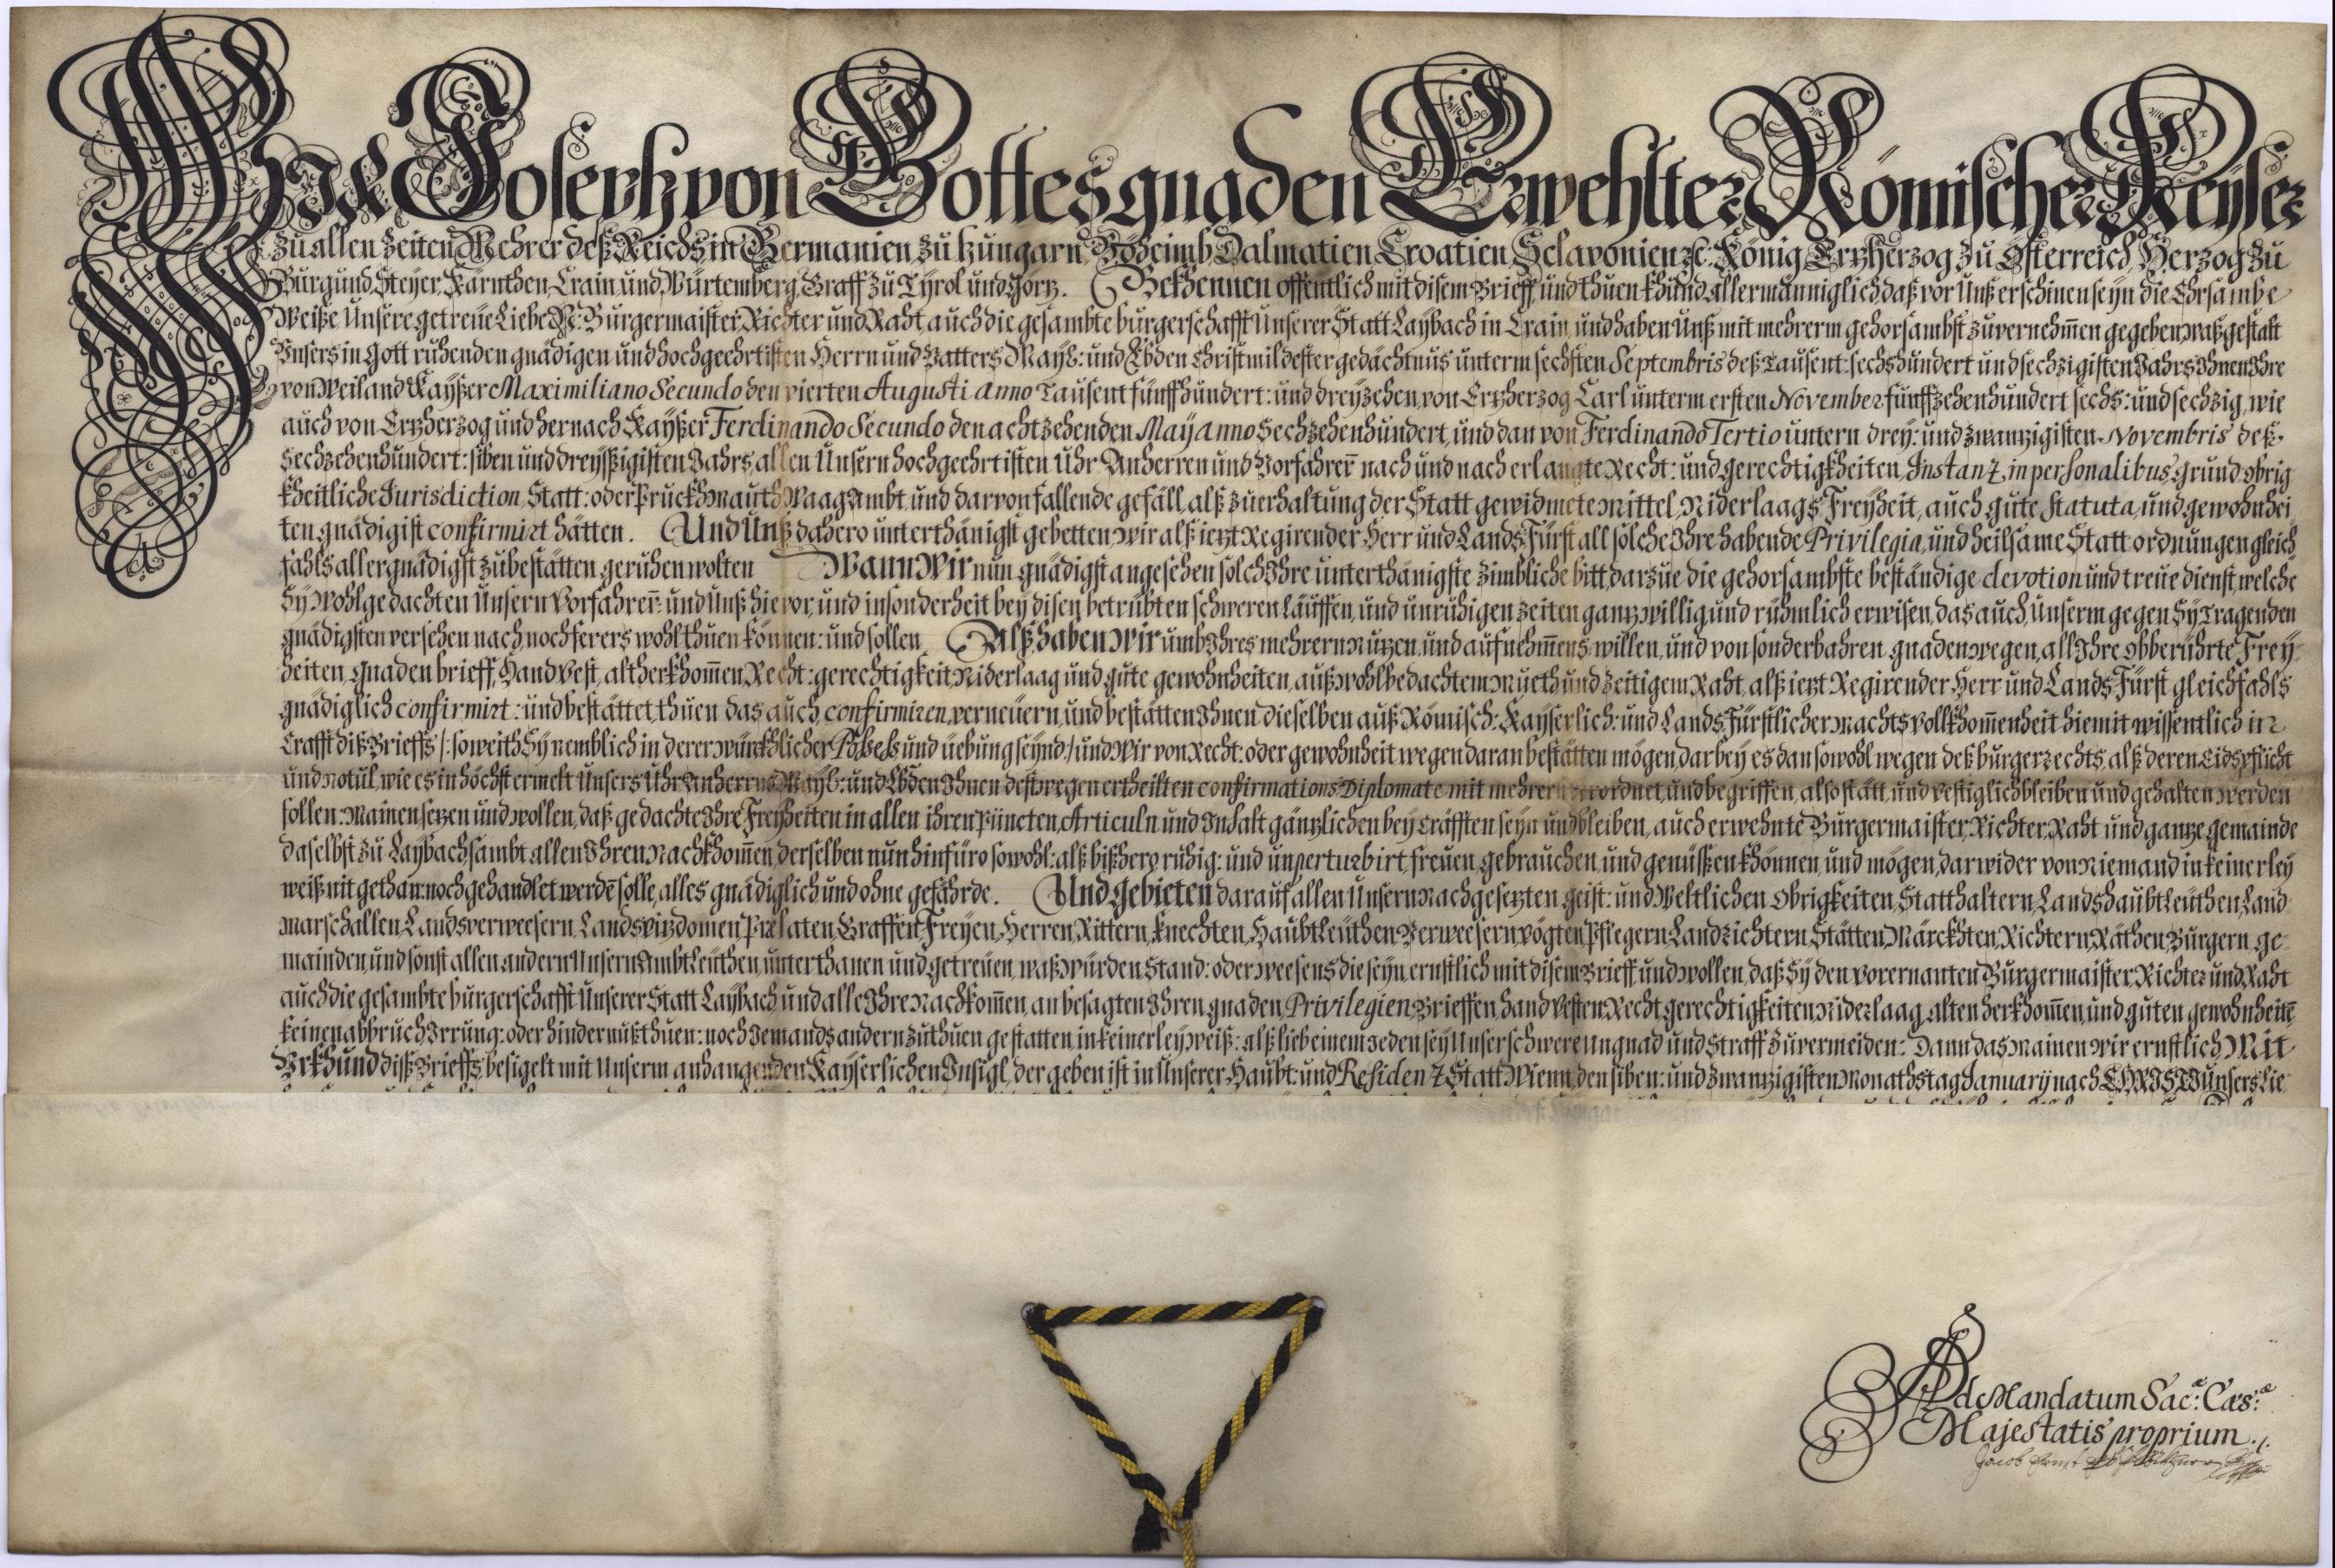 Wir Joseph von Gottes gnaden Erwehlter Römischer Keyser
zu allen Zeiten Mehrer deß Reichs in Germanien, zu Hungarn, Böheimb, Dalmatien, Croatien, Sclavonien ꝛc: König, Ertzherzog zu Österreich, Herzog zu
Burgund, Steyer, Kärnthen, Crain, und Würtemberg, Graff zu Tÿrol und Görz. Bekhennen offentlich mit disem Brieff, und thuen khund allermänniglich, daß vor Unß erschinen seyn die Ehrsambe
Weiße Unsere getreüe Liebe N: Burgermaister, Richter und Raht, auch die gesambte burgerschafft Unserer Statt Laÿbach in Crain, und haben Unß mit mehrerm gehorsambst zuvernehmen gegeben, waßgestalt
Unsers in Gott ruhenden gnädigen und hochgeehrtisten Herrn und Vatters Maÿt: und Lbden Christmildester gedächtnus unterm sechsten Septembris deß Tausent: sechshundert und sechzigisten Jahrs Ihnen Ihre
von Weiland Kaÿßer Maximiliano Secundo den vierten Augusti Anno Tausent fünffhundert: und dreyzehen, von Ertzherzog Carl unterm ersten November fünffzehenhundert sechs: und sechzig, wie
auch von Ertzherzog und hernach Kaÿßer Ferdinando Secundo den achtzehenden Maÿ Anno Sechzehenhundert, und dan von Ferdinando Tertio untern dreÿ: und zwantzigisten Novembris deß
Sechzehenhundert: siben und dreyssigisten Jahrs, allen Unsern hochgeehrtisten Uhr Anherren und Vorfahrern nach und nach erlangte Recht: und gerechtigkheiten, Instanz in personalibus, grund obrig
kheitliche Jurisdiction, Statt: oder Pruckh Mauth, Waag Ambt, und darvon fallende gefäll, alß zu erhaltung der Statt gewidmete Mittel, Niderlaags Freÿheit, auch gute Statuta, und gewohnhei
ten gnädigist confirmirt hätten. Und Unß dahero unterthänigst gebetten, wir alß ietzt Regirender Herr und Lands Fürst all solche Ihre habende Privilegia, und heilsame Statt ordnungen gleich
fahls allergnädigst zubestätten geruhen wolten Wann Wir nun gnädigst angesehen solch Ihre unterthänigste zimbliche bitt, darzue die gehorsambste beständige devotion und treue dienst, welche
Sÿ wohlgedachten Unsern Vorfahrern: und Unß hievor, und insonderheit beÿ disen betrübten schweren läuffen, und unruhigen zeiten gantz willig und rühmlich erwisen, das auch Unserm gegen Sÿ Tragenden
gnädigsten versehen nach, noch ferers wohl thuen können: und sollen. Alß haben Wir umb Ihres mehrern nutzen, und aufnehmens willen, und von sonderbahren gnaden wegen, all Ihre obberührte Freÿ
heiten, gnaden brieff, Handvest, altherkhommen, Recht: gerechtigkeit, Niderlaag und gute gewohnheiten, auß wohlbedachtem mueth und zeitigem Raht, alß ietzt Regirender Herr und Lands Fürst gleichfahls
gnädiglich confirmirt: und bestättet, thuen das auch, confirmiren, verneuern, und bestätten Ihnen dieselben auß Römisch: Kaÿserlich: und Lands Fürstlicher machts vollkhommenheit hiemit wissentlich in
Crafft diß Brieffs /: soweith Sÿ nemblich in derer würcklicher Posess und üebung seynd :/ und Wir von Recht: oder gewohnheit wegen daran bestätten mögen, darbeÿ es dan sowohl wegen deß burgerrechts, alß deren Eidspflicht
und notul, wie es in höchst ermelt Unsers Uhr Anherrns Maÿt: und Lbden Ihnen destwegen ertheilten confirmations Diplomate mit mehrern verordnet, und begriffen, also stätt, und vestiglich bleiben und gehalten werden
sollen: Mainen, setzen und wollen, daß gedachte Ihre Freÿheiten in allen ihren Püncten, Articuln und Inhalt gäntzlichen beÿ Cräfften seyn und bleiben, auch erwehnte Burgermaister, Richter, Raht und gantze gemainde
daselbst zu Laÿbach sambt allen Ihren Nachkhommen, derselben nun hinfüro sowohl: alß bißhero ruhig: und unperturbirt freuen, gebrauchen, und genüssen khönnen, und mögen, darwider von Niemand in keinerleÿ
weiß nit gethan: noch gehandlet werden solle, alles gnädiglich und ohne gefährde. Und gebieten darauf allen Unsern nachgesetzten geist: und Weltlichen Obrigkeiten, Statthaltern, Landshaubtleüthen, Land
marschallen, Landsverweesern, Landsvizdomen, Prælaten, Graffen, Freyen, Herren, Rittern, Knechten, Haubtleüthen, Verweesern, Vögten, Pflegern, Landrichtern, Stätten, Märckhten, Richtern, Räthen, Burgern, ge
mainden, und sonst allen andern Unsern Ambtleüthen, unterthanen und getreuen, waß würden Stand: oder weesens die seyn, ernstlich mit disem Brieff, und wollen, daß Sÿ den vorernanten Burgermaister, Richter und Raht
auch die gesambte burgerschafft Unserer Statt Laÿbach, und alle Ihre Nachkommen, an besagten Ihren gnaden, Privilegien, Brieffen, Handvesten, Recht, gerechtigkeiten, Niderlaag, alten herkhommen, und guten gewohnheiten
keinen abbruch, Irrung: oder hindernuß thuen: noch Jemands andern zuthuen gestatten, in keinerleÿ weiß: alß lieb einem Jeden seÿ Unser schwere ungnad und Straff zuvermeiden: Dann das mainen wir ernstlich. Mit
Urkhund diß Brieffs, besigelt mit Unserm anhangenden Kaÿserlichen Insigl, der geben ist in Unserer Haubt: und Residenz Statt Wienn, den siben: und zwantzigisten Monathstag Januarÿ nach CHRISTI unsers lie
Ad Mandatum Sac:æ Cæs:æ
Majestatis proprium ./.
Jacob Ernst